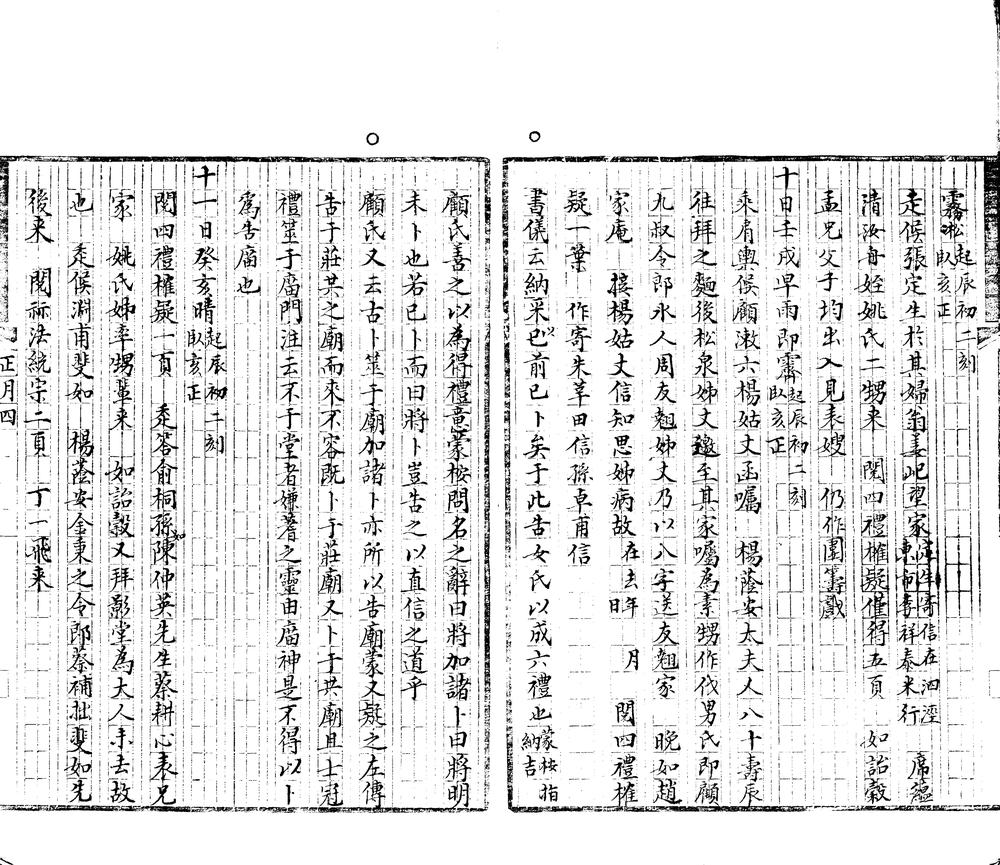 霧淞起辰初二刻臥亥正
走候張定生於其婦翁姜屺望家定生寄信在泗涇東市壽祥泰米行 席蘊
清汝舟姪姚氏二甥來 閱四禮榷疑僅得五頁 如詒穀
孟兄父子均出入見表嫂 仍作圍籌戲
十日壬戌早雨即霽起辰初二刻臥亥正
乘肩輿候顧漱六楊姑丈函囑 楊蔭安太夫人八十壽辰
往拜之麵後松泉姊丈邀至其家囑為素甥作伐男氏即顧
九叔令郎氷人周友翹姊丈乃以八字送友翹家 晚如趙
家庵 接楊姑丈信知思姊病故在去年 月 日 閱四禮榷
疑一葉 作寄朱莘田信孫卓甫信
書儀云納采以前已卜矣于此告女氏以成六禮也蒙桉指納吉
顧氏善之以為得禮意蒙桉問名之辭曰將加諸卜曰將明
未卜也若已卜而曰將卜豈告之以直信之道乎
顧氏又云古卜筮于廟加諸卜亦所以告廟蒙又疑之左傳
告于莊共之廟而來不容既卜于莊廟又卜于共廟且士冠
禮筮于庿門注云不于堂者嫌蓍之靈由庿神是不得以卜
為告庿也
十一日癸亥晴起辰初二刻臥亥正
閱四禮榷疑一頁 走答俞桐孫知陳仲英先生蔡耕心表兄
家 姚氏姊率甥輩來 如詒穀又拜影堂為大人未去故
也 走候淵甫斐如 楊蔭安金秉之令郎蔡補拙斐如先
後來 閱祘法統宗二頁 丁一飛來
正月四